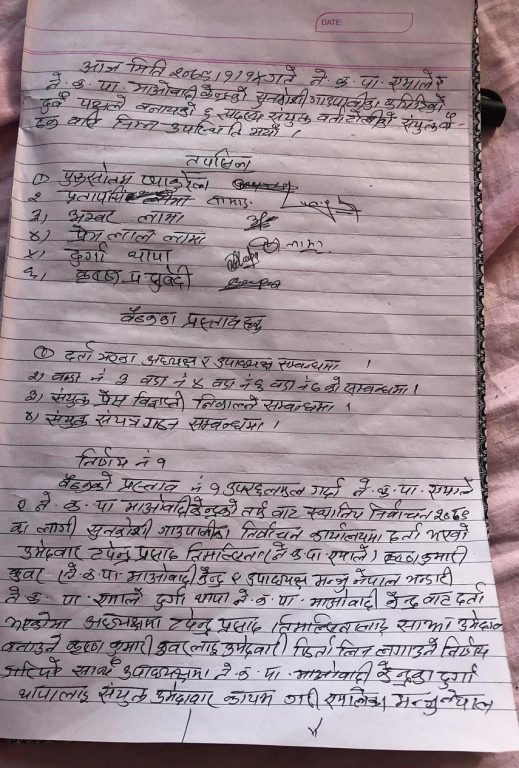 DATE:
आज मिति २०७९।१।१४ गते ने. क. पा. एमाले र
ने. क. पा. माओवादी केन्द्रको सुनकोशी गाउपालिका कमिटिको
दुवै पक्षले बनाएको ६ सदस्य संयुक्त वार्ता टोलीको संयुक्त बै-
ठक बसि निम्न उपस्थिती भयो ।
तपसिल
१ पुरुस्तोतम प्याकुरेल
२ प्रतापसिं लामा
३) अम्बर लामा
४) प्रेम लाल लामा
५) दुर्गा थापा
६) कृष्ण प्र. सुवेदी
बैठकका प्रस्ताव हरु
१ दर्ता भएका अध्यक्ष र उपाध्यक्ष सम्बन्धमा ।
२) वडा नं ३ वडा नं ४ वडा नं ६ वडा नं को सम्बन्धमा ।
३) संयुक्त प्रेस विज्ञप्ती निकाल्ने सम्बन्धमा ।
४) संयुक्त संयन्त्र गठन सम्बन्धमा ।
निर्णय नं १
बैठकको प्रस्ताव नं १ उपर छलफल गर्दा ने. क. पा. एमाले
र ने. क. पा माओवादी केन्द्रको तर्फ बाट स्थानिय निर्वाचन २०७९
का लागी सुनकोशी गाउपालिका निर्वाचन कार्यालयमा दर्ता भएको
उमेदवार टपेन्द्र प्रसाद तिमल्सिना (ने क पा एमाले) कृष्ण कुमारी
कुवर (ने. क. पा. माओवादी केन्द्र र उपाध्यक्ष मन्जु नेपाल भन्डारी
ने क. पा. एमाले दुर्गा थापा ने. क. पा. माओवादी केन्द्र बाट दर्ता
भएकोमा अध्यक्षमा टपेन्द्र प्रसाद तिमल्सिनालाइ साझा उमेदवार
बनाउने कृष्ण कुमारी कुवरलाइ उमेदवारी फिर्ता लिन लगाउने निर्णय
गरियो साथै उपाध्यक्षमा ने. क. पा. माओवादी केन्द्रका दुर्गा
थापालाइ संयुक्त उमेदवार कायम गरी एमालेका मन्जु नेपाल